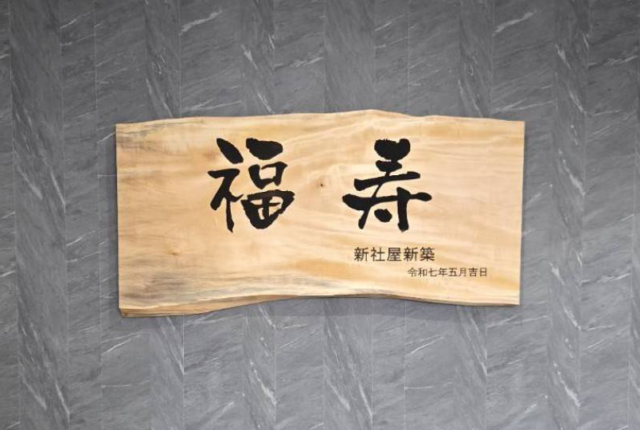 福寿
新社屋新築
令和七年五月吉日